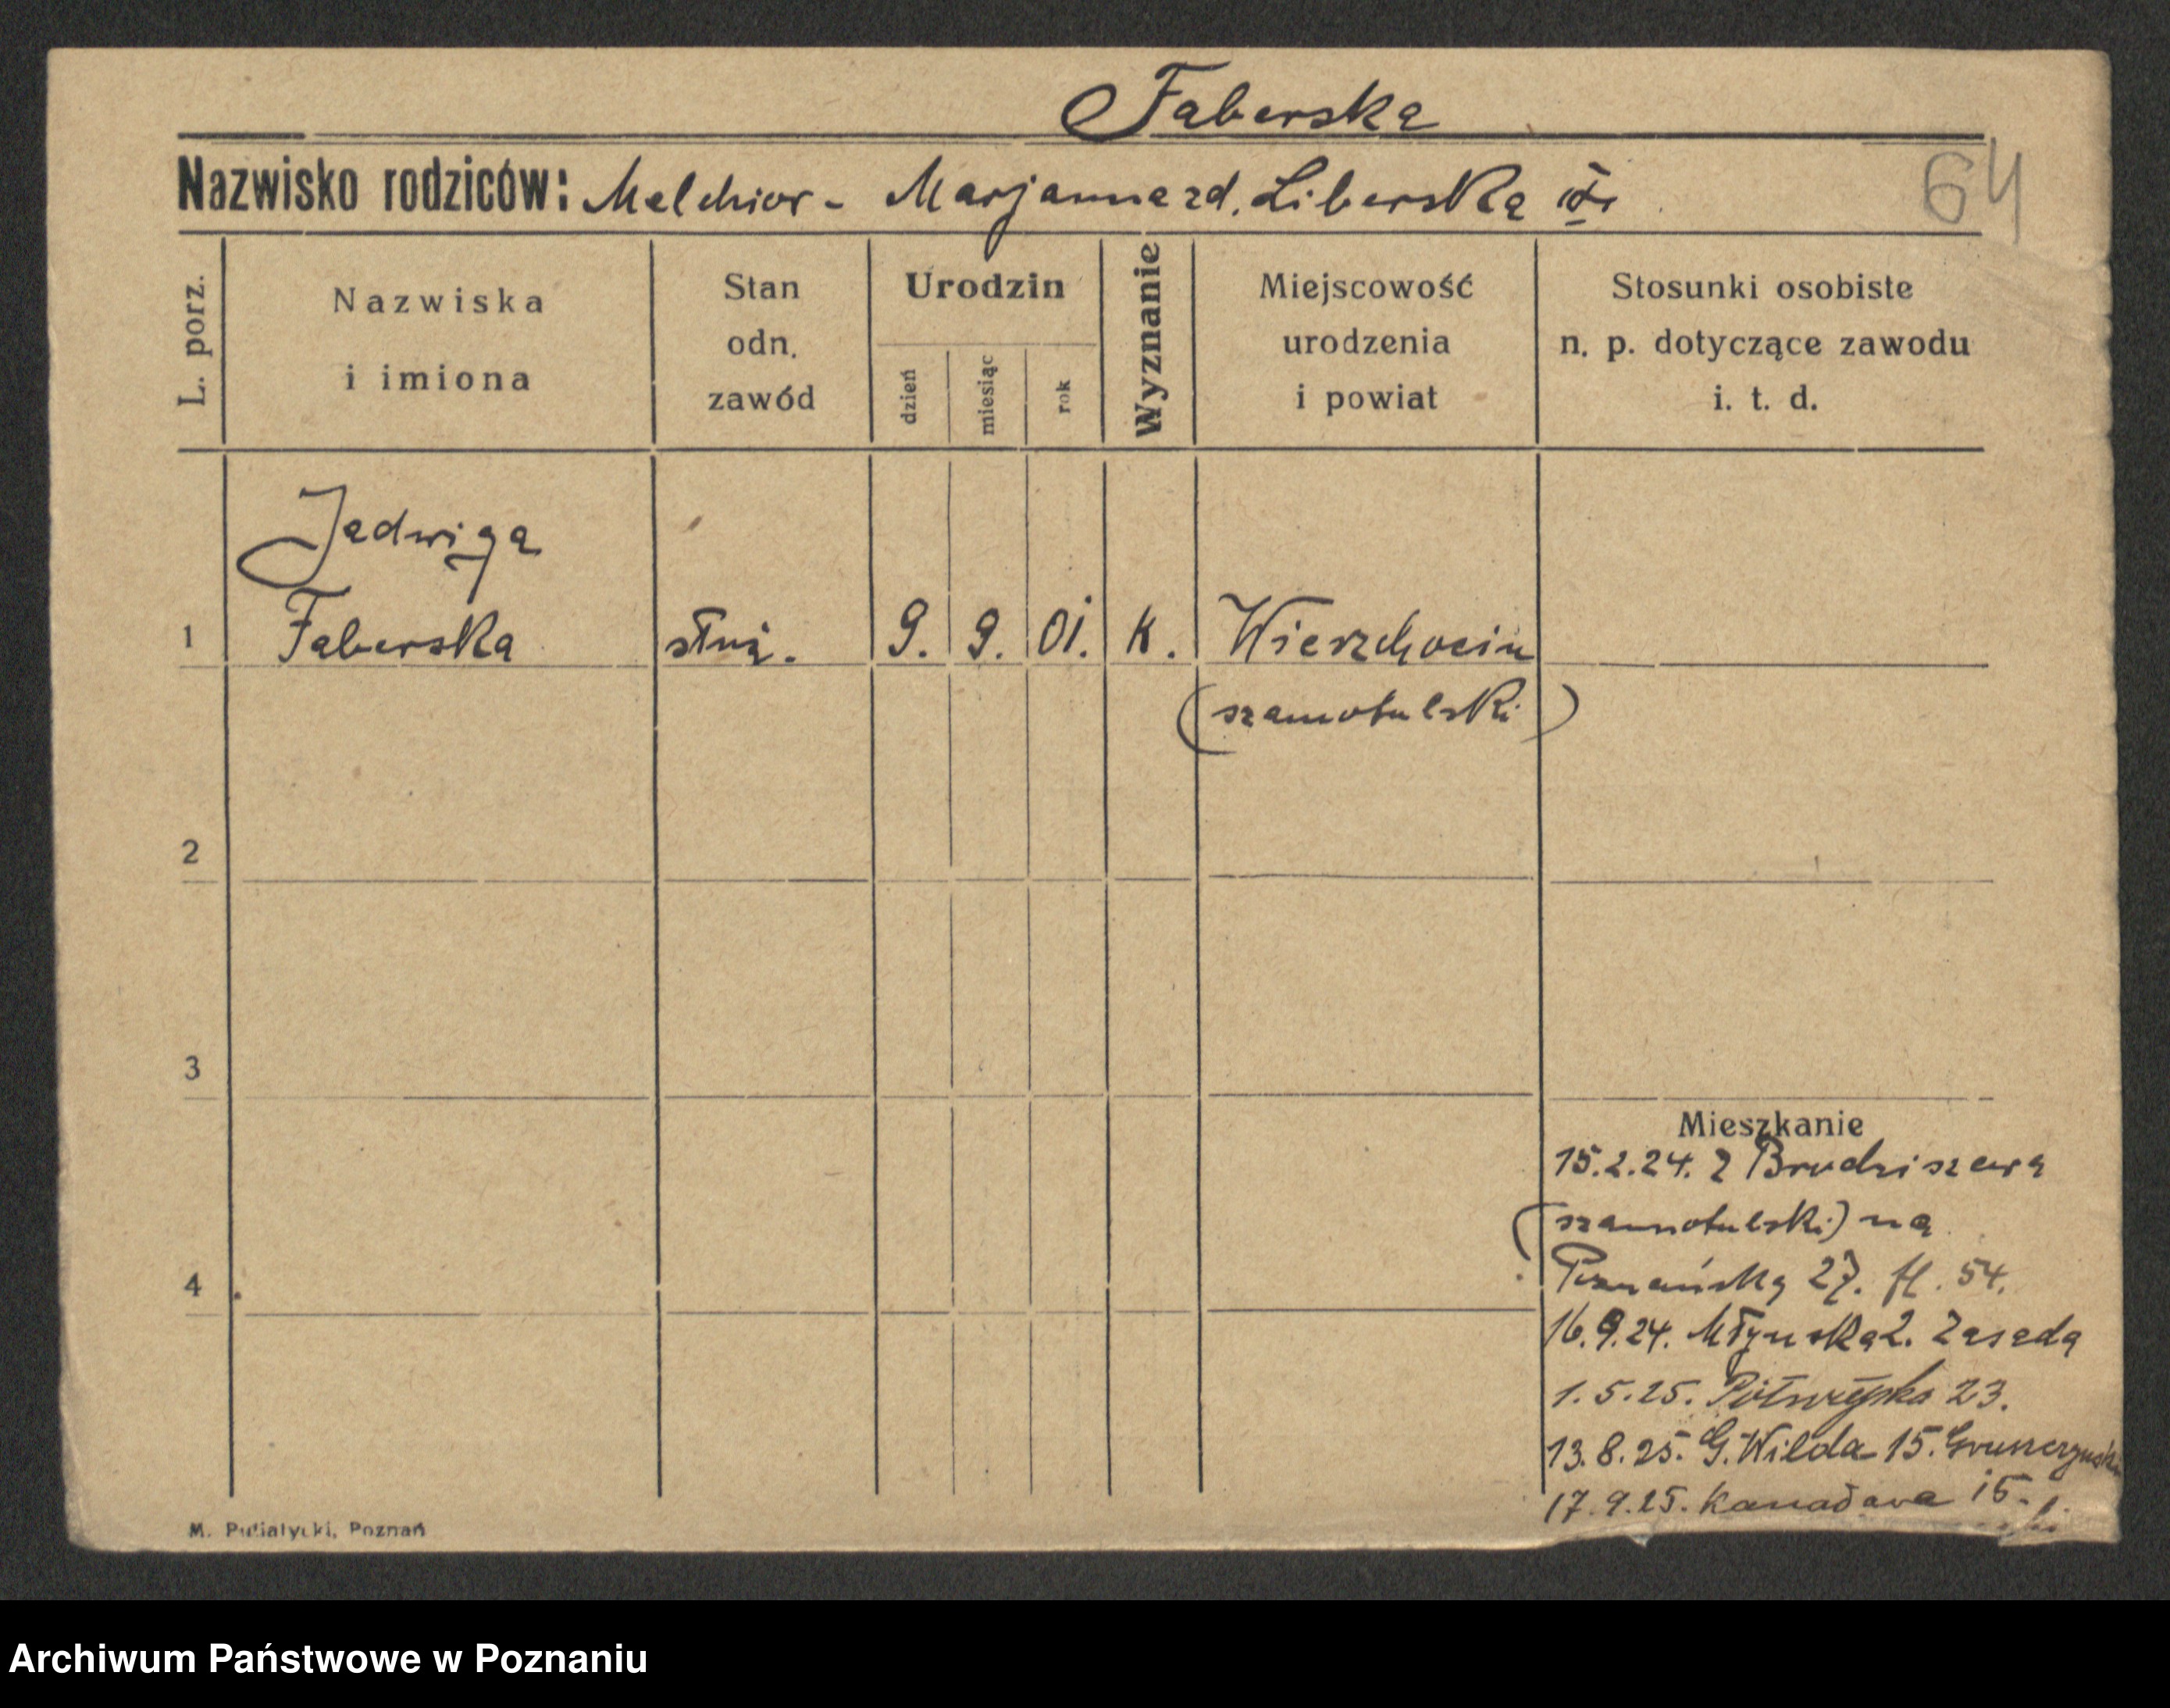 Faberska
Nazwisko rodziców: Melchior - Marjanna zd. Liberska
64
L. porz.
Nazwiska
i imiona
Stan
odn.
zawód
Urodzin
dzień
miesiąc
rok
Wyznanie
Miejscowość
urodzenia
i powiat
Stosunki osobiste
n. p. dotyczące zawodu
i. t. d.
Jadwiga
1 Faberska służ. 9. 9. 01. k. Wierzchocin
(szamotulski)
2
3
Mieszkanie
15.2.24. z Brodziszewa
(szamotulski) na
4
Poznańską 27. fl. 54.
16.9.24. Młyńska 2. Zasada
1.5.25. Półwiejska 23.
13.8.25. G. Wilda 15. Gruszczyński
17.9.25. 15.
M. Putiatycki, Poznań
Archiwum Państwowe w Poznaniu